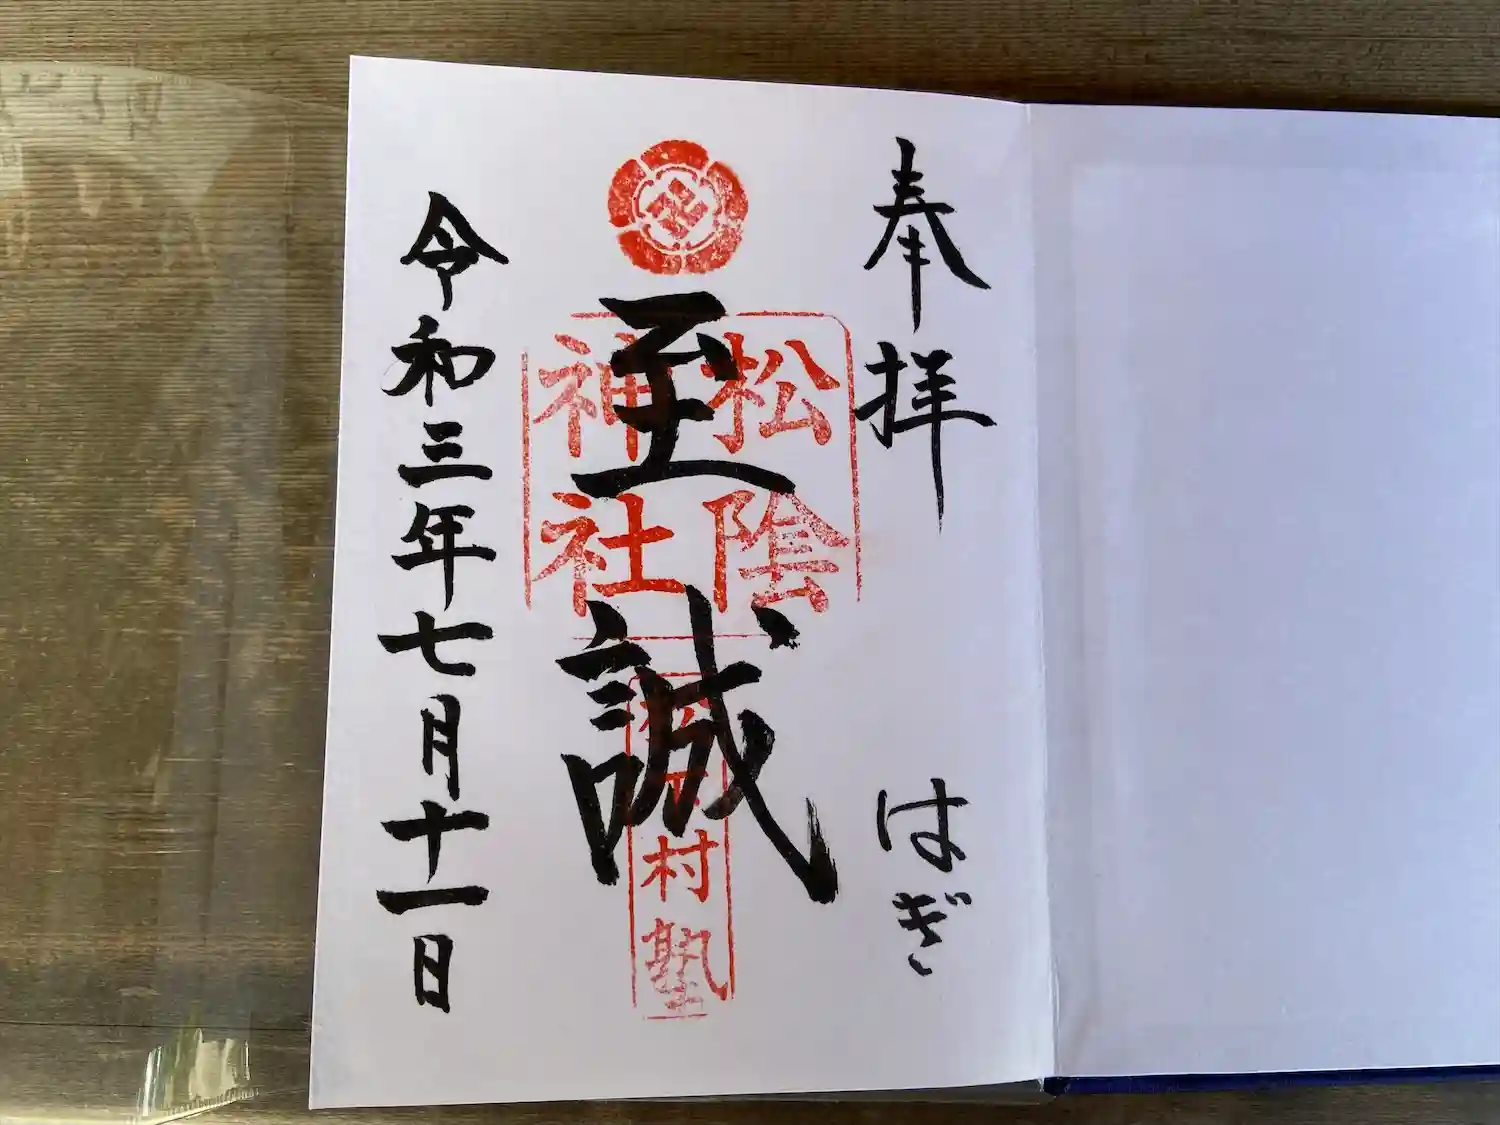 奉拝
はぎ
至誠
松陰
神社
松下村塾
令和三年七月十一日